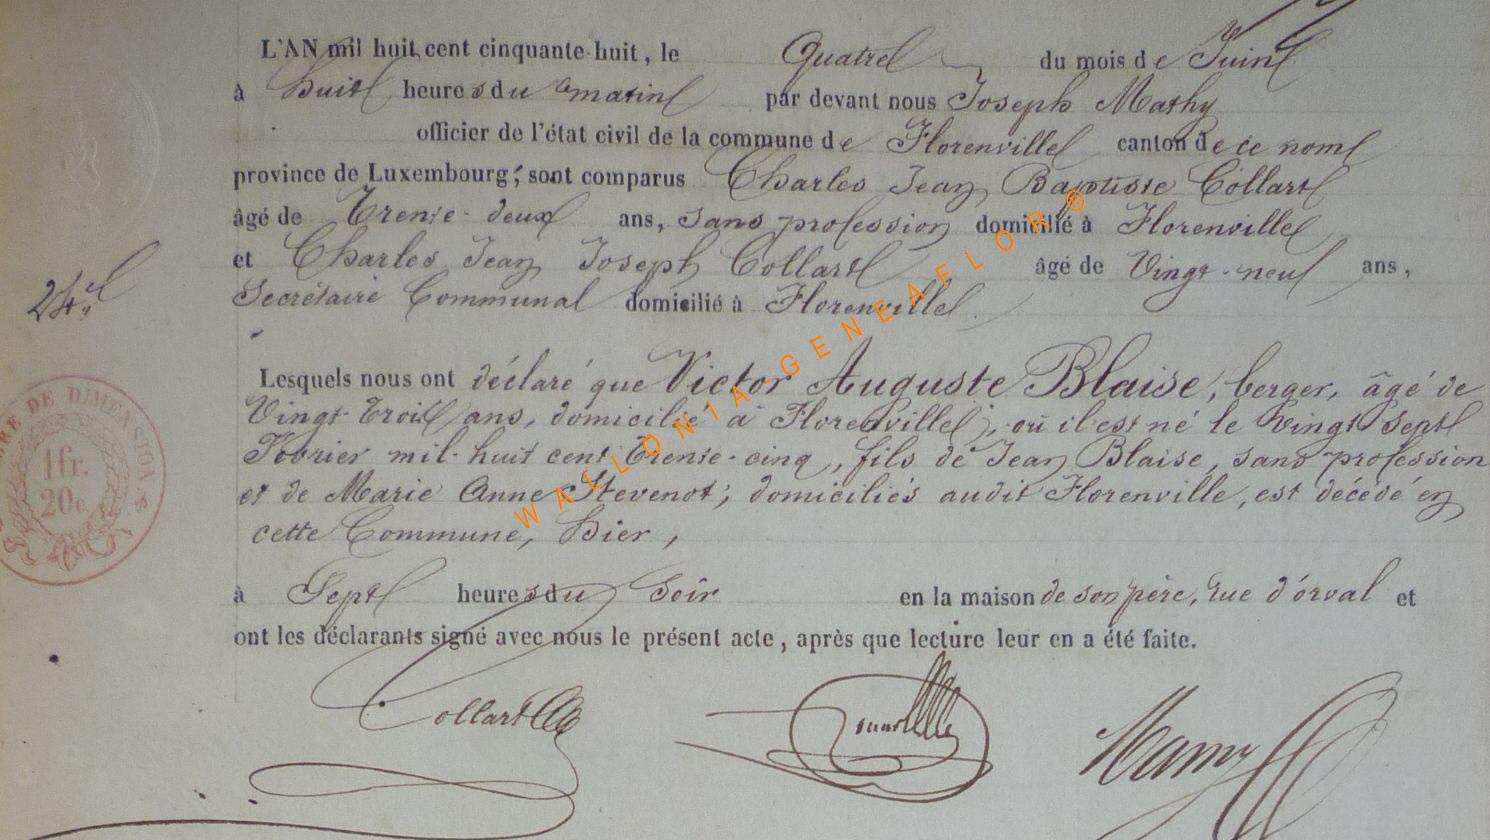 L'AN mil huit cent cinquante-huit, le Quatre du mois de Juin
à huit heures du matin par devant nous Joseph Mathy
officier de l'état civil de la commune de Florenville canton de ce nom
province de Luxembourg, sont comparus Charles Jean Baptiste Collart
âgé de Trente-deux ans, sans profession domicilié à Florenville
et Charles Jean Joseph Collart âgé de Vingt-neuf ans,
Secrétaire Communal domicilié à Florenville
24e
Lesquels nous ont déclaré que Victor Auguste Blaise, berger, âgé de
Vingt trois ans, domicilié à Florenville, où il est né le vingt sept
Février mil-huit cent trente-cinq, fils de Jean Blaise, sans profession
et de Marie Anne Stevenot; domiciliés audit Florenville, est décédé en
cette Commune, hier,
à Sept heures du Soir en la maison de son père, rue d'orval et
ont les déclarants signé avec nous le présent acte, après que lecture leur en a été faite.
TIMBRE DE DIMENSION
1fr.
20c.
Collart
WALLONIA-GENEAFLOR®